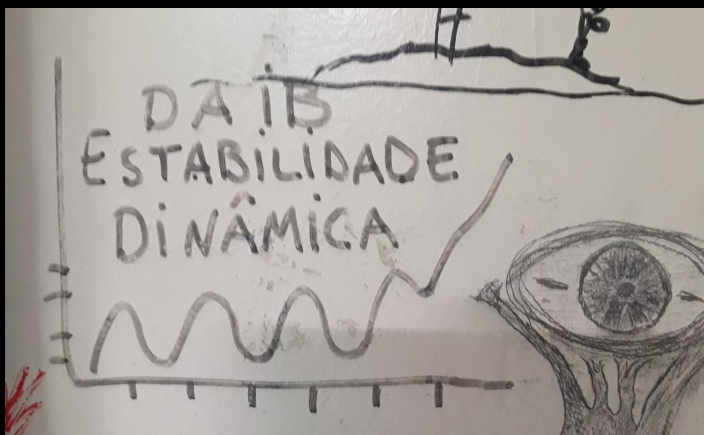 DA İB
ESTABİLİDADE
DİNÂMİCA